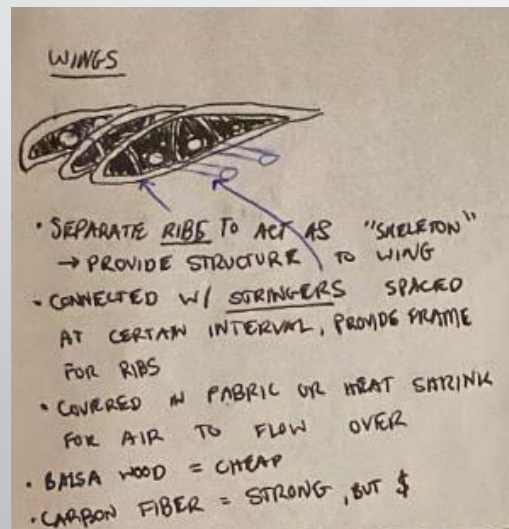 WINGS
• SEPARATE RIBS TO ACT AS "SKELETON"
→ PROVIDE STRUCTURE TO WING
• CONNECTED W/ STRINGERS SPACED
AT CERTAIN INTERVAL, PROVIDE FRAME
FOR RIBS
• COVERED IN FABRIC OR HEAT SHRINK
FOR AIR TO FLOW OVER
• BALSA WOOD = CHEAP
• CARBON FIBER = STRONG, BUT $